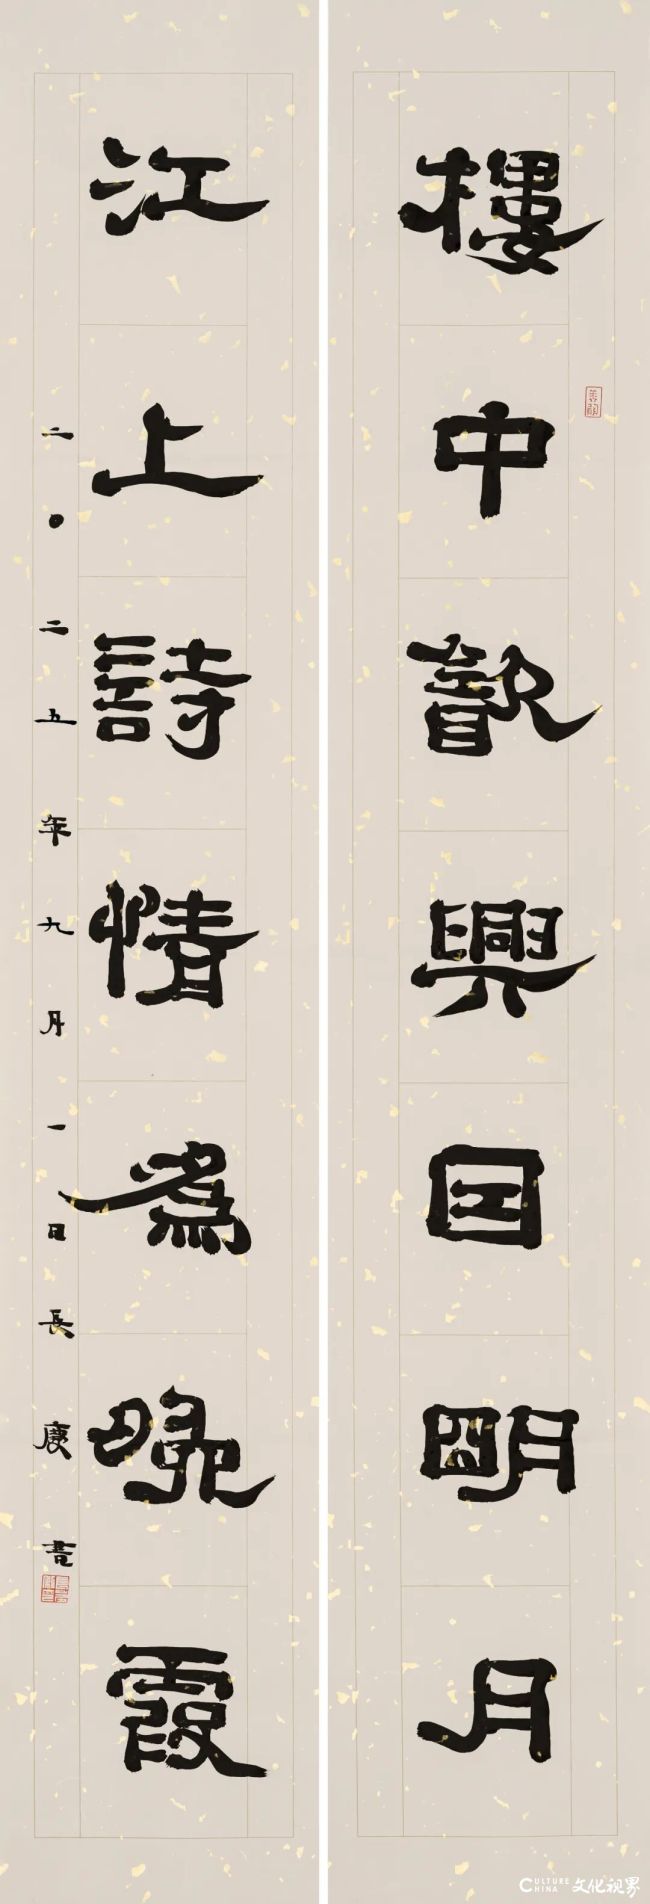 樓中㱃興因朙月
江上詩情為晚霞
二〇二五年九月一日長庚書
CULTURE CHINA 文化视界